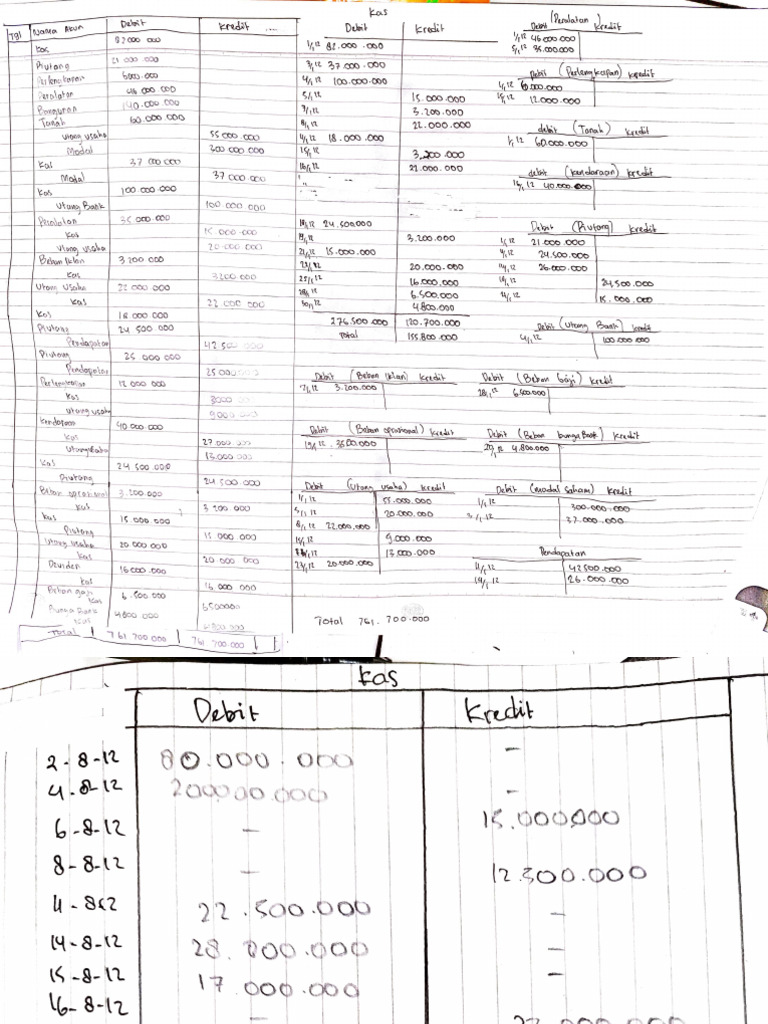 Tgl Nama Akun Debit Kredit
Kas 82 000 000
Piutang 21 000 000
Perlengkapan 6000 000
Peralatan 46 000 000
Bangunan 140.000 000
Tanah 60.000 000
Utang usaha 55 000 000
Modal 300 000 000
Kas 37 000 000
Modal 37 000 000
Kas 100 000 000
Utang Bank 100 000 000
Peralatan 35 000 000
Kas 15 000 000
Utang usaha 20 000 000
Beban Iklan 3 200 000
Kas 3200 000
Utang usaha 22 000 000
Kas 22 000 000
Kas 18 000 000
Piutang 24 500 000
Pendapatan 42.500 000
Piutang 25 000 000
Pendapatan 25 000 000
Perlengkapan 12 000 000
Kas 3000 000
Utang usaha 9000 000
Kendaraan 40 000 000
Kas 27 000 000
Utang usaha 13.000 000
Kas 24 500 000
Piutang 24 500 000
Beban oprasional 3.200.000
Kas 3 200 000
Kas 15 000 000
Piutang 15 000 000
Utang usaha 20 000 000
Kas 20 000 000
Deviden 16 000.000
Kas 16 000 000
Beban gaji 6 500 000
Kas 6500000
Bunga Bank 4800 000
Kas 4800 000
Total 761 700 000 761 700 000
Kas
Debit Kredit
1/12 82.000.000
3/12 37.000.000
4/12 100.000.000
5/12 15.000.000
7/12 3.200.000
8/12 22.000.000
11/12 18.000.000
15/12 3.200.000
16/12 21.000.000
18/12 24.500.000
19/12 3.200.000
21/12 15.000.000
20.000.000
25/12 16.000.000
28/12 6.500.000
30/12 4.800.000
276.500.000 120.700.000
Total 155.800.000
Debit (Peralatan) Kredit
1/12 46.000.000
5/12 35.000.000
Debit (Perlengkapan) Kredit
12.000.000
debit (Tanah) kredit
1/12 60.000.000
debit (kendaraan) kredit
16/12 40.000.000
Debit (Piutang) Kredit
21.000.000
24.500.000
26.000.000
24.500.000
15.000.000
Debit (Utang Bank) kredit
4/12 100.000.000
Debit (Beban iklan) Kredit
7/12 3.200.000
Debit (Beban Gaji) Kredit
28/12 6.500.000
Debit (Beban oprasional) Kredit
19/12
Debit (Beban bunga Bank) Kredit
4.800.000
Debit (Utang usaha) Kredit
1/12 55.000.000
5/12 20.000.000
8/12 22.000.000
9.000.000
13.000.000
20.000.000
Debit (modal saham) Kredit
1/12 300.000.000
37.000.000
Pendapatan
11/12 42.500.000
14/12 26.000.000
Total 761.700.000
Kas
Debit Kredit
2-8-12 80.000.000 -
4-8-12 200.000.000 -
6-8-12 - 15.000.000
8-8-12 - 12.300.000
22.500.000 -
14-8-12 28.800.000 -
15-8-12 17.000.000 -
16-8-12 -